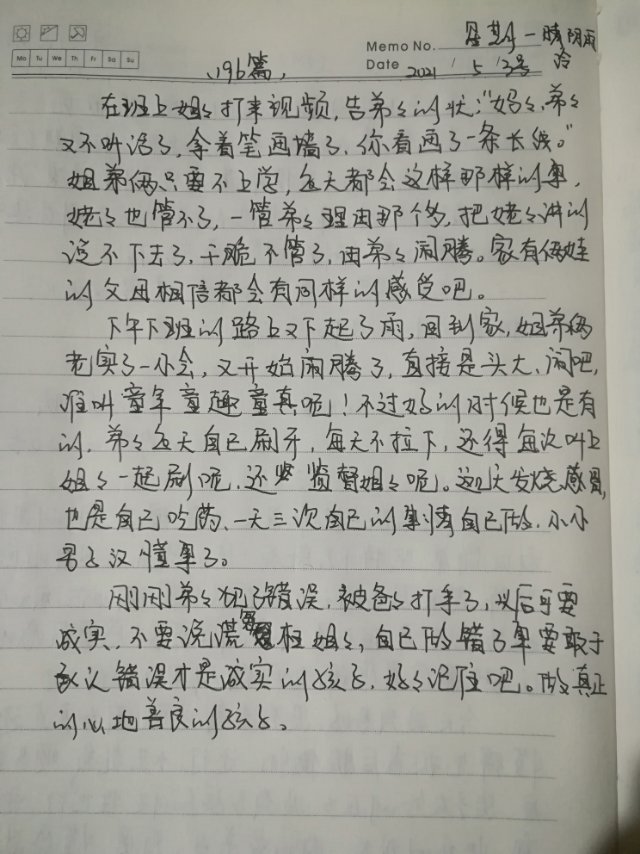 Mo Tu We Th Fr Sa Su
Memo No. 星期一晴阴雨
冷
Date 2021 / 5 / 3号
196篇,
在班上姐々打来视频,告弟々的状:"妈々,弟々
又不听话了,拿着笔画墙了,你看画了一条长线。"
姐弟俩只要不上学,每天都会这样那样的事,
姥々也管不了,一管弟々理由那个多,把姥々讲的
说不下去了,干脆不管了,由弟々闹腾。家有俩娃
的父母相信都会有同样的感受吧。
下午下班的路上又下起了雨,回到家,姐弟俩
老实了一小会,又开始闹腾了,直接是头大,闹吧,
谁叫童年童趣童真呢!不过好的时候也是有
的,弟々每天自己刷牙,每天不拉下,还得每次叫上
姐々一起刷呢,还监督姐々呢。这几天发烧感冒,
也是自己吃药,一天三次自己的事情自己做,小小
男子汉懂事了。
刚刚弟々犯了错误,被爸々打手了,以后可要
诚实,不要说谎冤枉姐々,自己做错了事要敢于
承认错误才是诚实的孩子,好々记住吧。做真正
的心地善良的孩子。